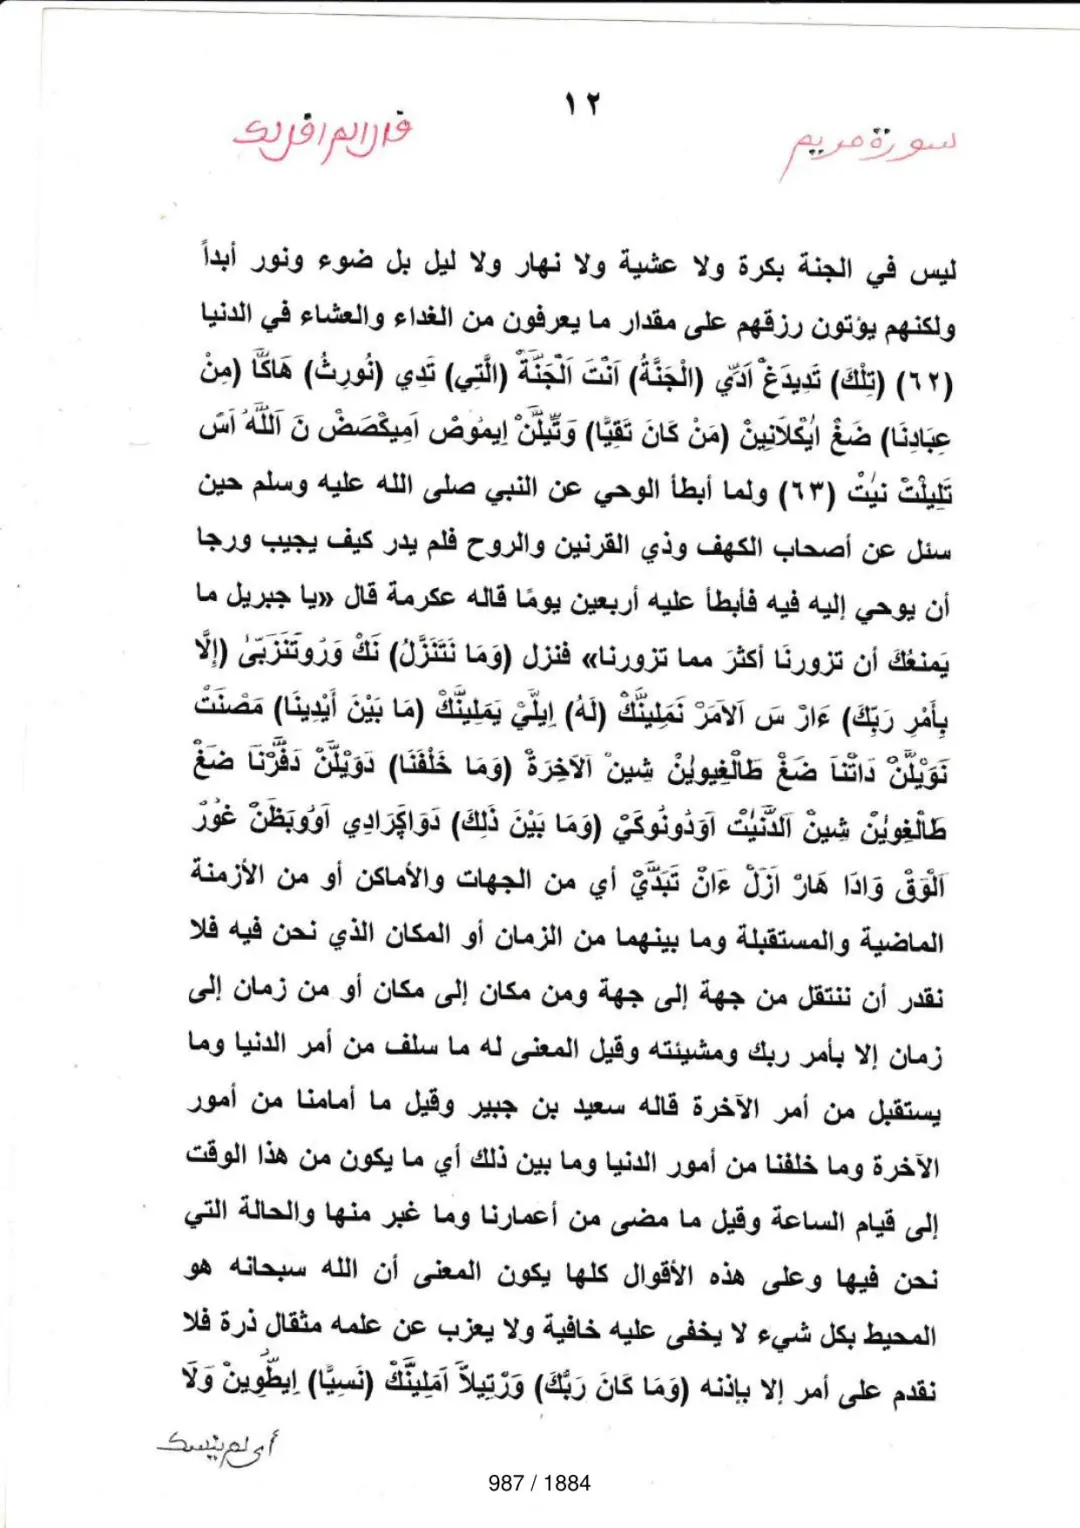 ١٢
سورة مريم
قال ألم أقل لك
ليس في الجنة بكرة ولا عشية ولا نهار ولا ليل بل ضوء ونور أبداً
ولكنهم يؤتون رزقهم على مقدار ما يعرفون من الغداء والعشاء في الدنيا
(٦٢) (تِلْكَ) تَدِيدَغْ اَدِّي (الْجَنَّةُ) اَنْتَ اَلْجَنَّةْ (الَّتِي) تَدِي (نُورِثُ) هَاكَّا (مِنْ
عِبَادِنَا) ضَغْ اَيْكْلَانِينْ (مَنْ كَانَ تَقِيًّا) وَتِّيلَّنْ اِيمُوصْ اَمِيكْصَضْ نَ اَللَّهُ اَسْ
تَلِيلْتْ نِيْتْ (٦٣) ولما أبطأ الوحي عن النبي صلى الله عليه وسلم حين
سئل عن أصحاب الكهف وذي القرنين والروح فلم يدر كيف يجيب ورجا
أن يوحي إليه فيه فأبطأ عليه أربعين يومًا قاله عكرمة قال «يا جبريل ما
يَمنعُكَ أن تزورنَا أكثرَ مما تزورنا» فنزل (وَمَا نَتَنَزَّلُ) نَكْ وَرُوتَنَزَبّىْ (إِلَّا
بِأَمْرِ رَبِّكَ) ءَارْ سَ اَلاَمَرْ نَمَلِينَّكْ (لَهُ) اِيلَيْ يَمَلِينَّكْ (مَا بَيْنَ أَيْدِينَا) مَصْنَتْ
نَوَيْلَّنْ دَاتْنَا ضَغْ طَالْغِيوِيْنْ شِينْ اَلآخِرَةْ (وَمَا خَلْفَنَا) دَوَيْلَّنْ دَفَّرْنَا ضَغْ
طَالْغِوِيْنْ شِينْ اَلدَّنْيْتْ اَوَدُونُوكَيْ (وَمَا بَيْنَ ذَلِكَ) دَوَاكَرَادِي اَوُوبَظَنْ غُوْرْ
اَلْوَقْ وَادَا هَارْ اَزَلْ ءَانْ تَبَدَّيْ أي من الجهات والأماكن أو من الأزمنة
الماضية والمستقبلة وما بينهما من الزمان أو المكان الذي نحن فيه فلا
نقدر أن ننتقل من جهة إلى جهة ومن مكان إلى مكان أو من زمان إلى
زمان إلا بأمر ربك ومشيئته وقيل المعنى له ما سلف من أمر الدنيا وما
يستقبل من أمر الآخرة قاله سعيد بن جبير وقيل ما أمامنا من أمور
الآخرة وما خلفنا من أمور الدنيا وما بين ذلك أي ما يكون من هذا الوقت
إلى قيام الساعة وقيل ما مضى من أعمارنا وما غبر منها والحالة التي
نحن فيها وعلى هذه الأقوال كلها يكون المعنى أن الله سبحانه هو
المحيط بكل شيء لا يخفى عليه خافية ولا يعزب عن علمه مثقال ذرة فلا
نقدم على أمر إلا بإذنه (وَمَا كَانَ رَبُّكَ) وَرْتِيلاَّ اَمَلِينَّكْ (نَسِيًّا) اِيطَّوِينْ وَلَا
أي لم ينسك
987 / 1884